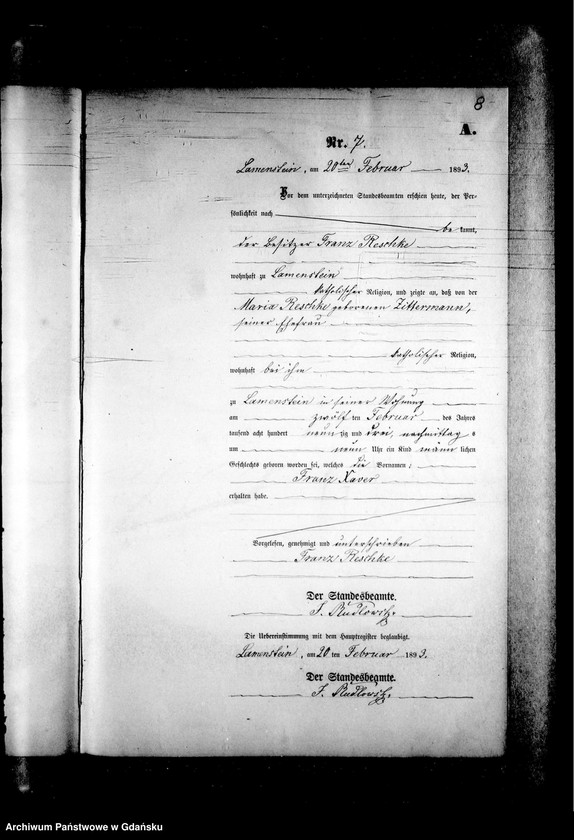 8
A.
Nr. 7.
Lamenstein, am 20ten Februar 1893.
Vor dem unterzeichneten Standesbeamten erschien heute, der Per-
sönlichkeit nach
be kannt,
der Besitzer Franz Reschke
wohnhaft zu Lamenstein
katholischer Religion, und zeigte an, daß von der
Maria Reschke geborenen Zittermann,
seiner Ehefrau
katholischer Religion,
wohnhaft bei ihm
zu Lamenstein in seiner Wohnung
am zwölf ten Februar des Jahres
tausend acht hundert neun zig und drei, nachmittag s
um neun Uhr ein Kind männ lichen
Geschlechts geboren worden sei, welches die Vornamen:
Franz Xaver
erhalten habe.
Vorgelesen, genehmigt und unterschrieben
Franz Reschke
Der Standesbeamte.
F. Rudlowitz.
Die Uebereinstimmung mit dem Hauptregister beglaubigt.
Lamenstein, am 20 ten Februar 1893.
Der Standesbeamte.
F. Rudlowitz.
Archiwum Państwowe w Gdańsku